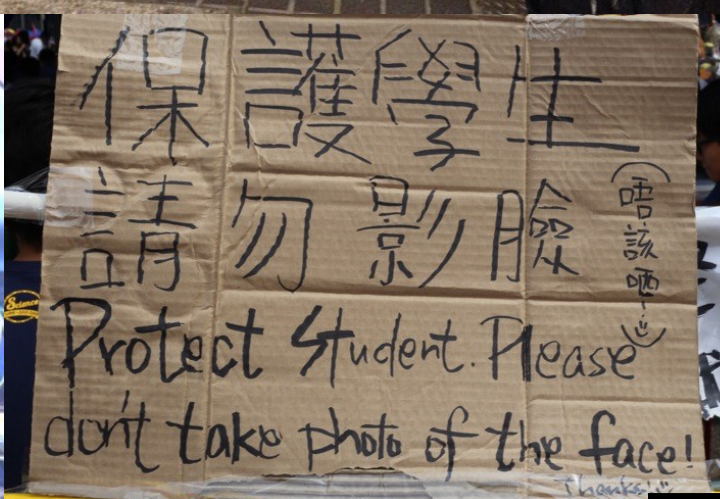 保護學生
請勿影臉
(唔該哂！:))
Protect Student. Please
don't take photo of the face!
Thanks! :)
Science